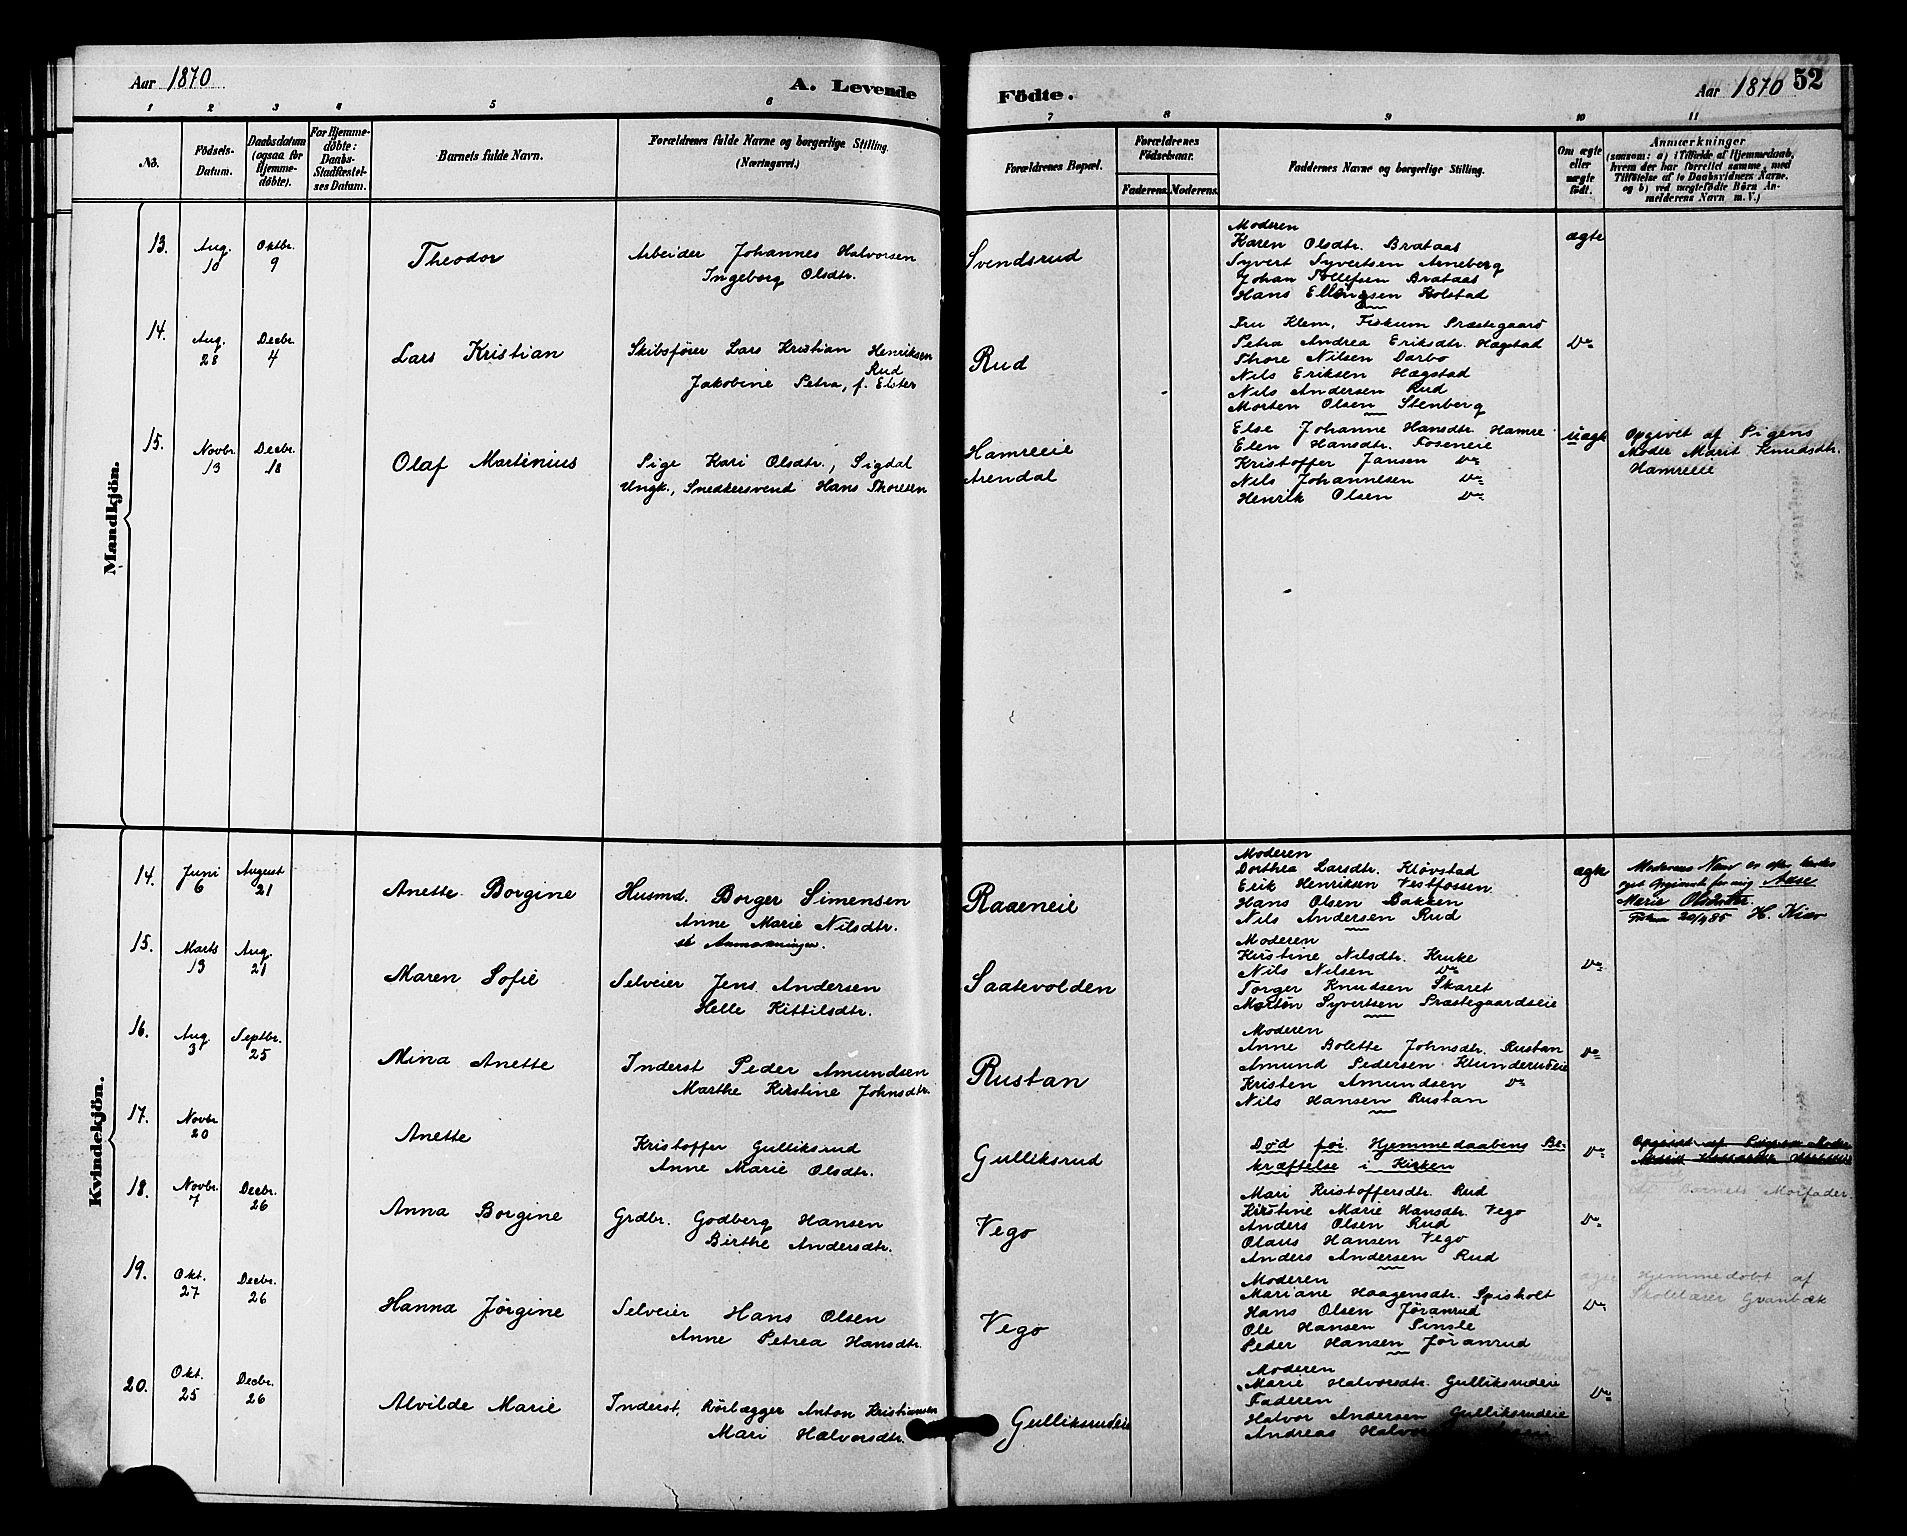 Aar 1870
A. Levende Födte.
Aar 1870 52
1 2 3 4 5 6 7 8 9 10 11
No.
Födsels-Datum.
Daabsdatum (ogsaa for Hjemme-døbte).
For Hjemme-døbte: Daabs-Stadfæstel-ses Datum.
Barnets fulde Navn.
Forældrenes fulde Navne og borgerlige Stilling. (Næringsvei.)
Forældrenes Bopæl.
Forældrenes Födselsaar.
Faderens. Moderens.
Faddernes Navne og borgerlige Stilling.
Om ægte eller uægte født.
Anmærkninger
(saasom: a) i Tilfælde af Hjemmedaab, hvem der har forrettet samme, med Tilføielse af to Daabsvidners Navne, og b) ved uægtefødte Börn An-melderens Navn m. V.)
Mandkjön.
13. Aug. 10 Oktbr. 9
Theodor
Arbeider Johannes Halvorsen
Ingeborg Olsdtr.
Svendsrud
Moderen
Karen Olsdtr. Brataas
Syvert Syvertsen Arneberg
Johan Tollefsen Brataas
Hans Ellingsen Kolstad
ægte
14. Aug. 28 Decbr. 4
Lars Kristian
Skibsfører Lars Kristian Henriksen
Rud
Jakobine Petra, f. Elster
Rud
Fru Klem, Fiskum Præstegaard
Petra Andrea Eriksdtr. Hægstad
Thore Nilsen Darbo
Nils Eriksen Hægstad
Nils Andersen Rud
Morten Olsen Stenberg
Do
15. Novbr. 13 Decbr. 18
Olaf Martinius
Pige Kari Olsdtr., Sigdal
Ungk., Snedkersvend Hans Thoresen
Hamreeie
Arendal
Else Johanne Hansdtr. Hamre
Elen Hansdtr. Foseneie
Kristoffer Jansen Do
Nils Johannesen Do
Henrik Olsen Do
uægte
Opgivet af Pigens
Moder Marit Knudsdtr.
Hamreeie
Kvindekjön.
14. Juni 6 August 21
Anette Borgine
Husmd. Borger Simensen
Anne Marie Nilsdtr.
se Anmærkninger.
Raaeneie
Moderen
Dorthea Larsdtr. Kløvstad
Erik Henriksen Vestfossen
Hans Olsen Bakken
Nils Andersen Rud
ægte
Moderens Navn er efter
opgivende for mig Aase
Marie Olsdatter.
Fiskum 20/9 85 H. Kiær
15. Marts 13 Aug. 21
Maren Sofie
Selveier Jens Andersen
Helle Kittilsdtr.
Saatevolden
Moderen
Kirstine Nilsdtr. Kruke
Nils Nilsen Do
Torger Knudsen Skaret
Morten Syvertsen Præstegaardseie
Do
16. Aug. 3 Septbr. 25
Mina Anette
Inderst Peder Amundsen
Marthe Kirstine Johnsdtr.
Rustan
Moderen
Anne Bolette Johnsdtr. Rustan
Amund Pedersen Klunderudeie
Kristen Amundsen Do
Nils Hansen Rustan
Do
17. Novbr. 20
Anette
Kristoffer Gulliksrud
Anne Marie Olsdtr.
Gulliksrud
Død før Hjemmedaabens Be-
kræftelse i Kirken
Do
Opgivet af Pigens Moder
18. Novbr. 7 Decbr. 26
Anna Borgine
Grdbr. Godberg Hansen
Birthe Andersdtr.
Vego
Mari Kristoffersdtr. Rud
Kirstine Marie Hansdtr. Vego
Anders Olsen Rud
Olaus Hansen Vego
Anders Andersen Rud
Do
19. Okt. 27 Decbr. 26
Hanna Jørgine
Selveier Hans Olsen
Anne Petrea Hansdtr.
Vego
Moderen
Mariane Haagensdtr. Spisholt
Hans Olsen Jøranrud
Ole Hansen Sinsle
Peder Hansen Jøranrud
Do
20. Okt. 25 Decbr. 26
Alvilde Marie
Inderst, Rørlægger Anton Kristiansen
Mari Halvorsdtr.
Gulliksrudeie
Moderen
Marie Halvorsdtr. Gulliksrudeie
Faderen
Halvor Andersen Gulliksrudeie
Andreas
Do